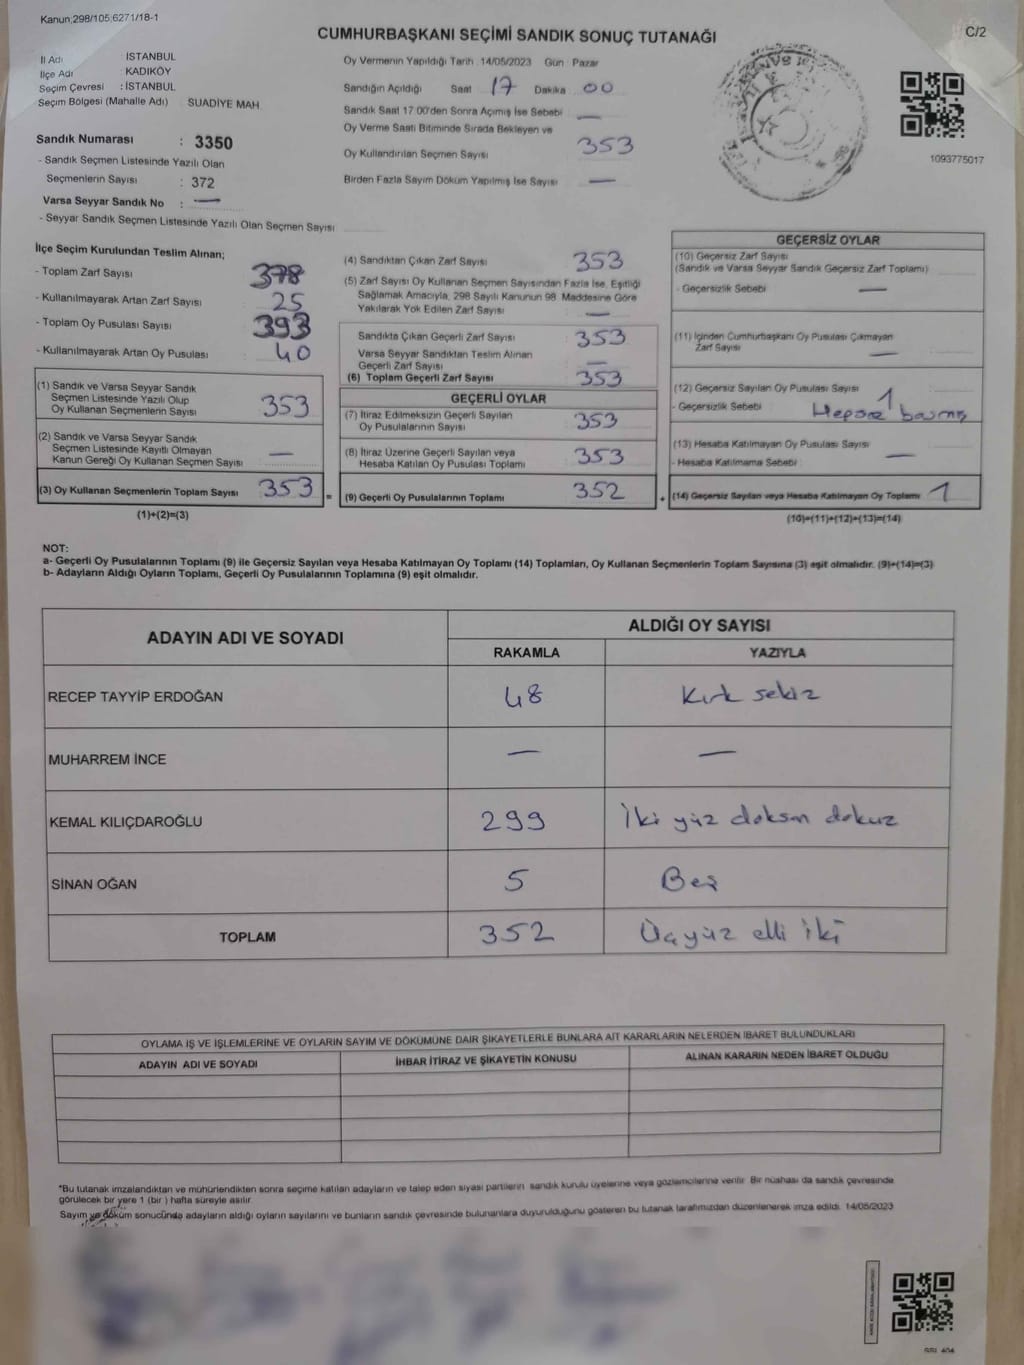 Kanun;298/105,6271/18-1
C/2
CUMHURBAŞKANI SEÇİMİ SANDIK SONUÇ TUTANAĞI
İl Adı : İSTANBUL
İlçe Adı : KADIKÖY
Seçim Çevresi : İSTANBUL
Seçim Bölgesi (Mahalle Adı) SUADİYE MAH.
Sandık Numarası : 3350
- Sandık Seçmen Listesinde Yazılı Olan
Seçmenlerin Sayısı : 372
Varsa Seyyar Sandık No : —
- Seyyar Sandık Seçmen Listesinde Yazılı Olan Seçmen Sayısı
Oy Vermenin Yapıldığı Tarih :14/05/2023 Gün : Pazar
Sandığın Açıldığı Saat 17 Dakika 00
Sandık Saat 17:00'den Sonra Açımış İse Sebebi —
Oy Verme Saati Bitiminde Sırada Bekleyen ve
Oy Kullandırılan Seçmen Sayısı 353
Birden Fazla Sayım Döküm Yapılmış İse Sayısı —
1093775017
İlçe Seçim Kurulundan Teslim Alınan;
- Toplam Zarf Sayısı 378
- Kullanılmayarak Artan Zarf Sayısı 25
- Toplam Oy Pusulası Sayısı 393
- Kullanılmayarak Artan Oy Pusulası 40
(1) Sandık ve Varsa Seyyar Sandık
Seçmen Listesinde Yazılı Olup
Oy Kullanan Seçmenlerin Sayısı 353
(2) Sandık ve Varsa Seyyar Sandık
Seçmen Listesinde Kayıtlı Olmayan
Kanun Gereği Oy Kullanan Seçmen Sayısı —
(3) Oy Kullanan Seçmenlerin Toplam Sayısı 353 =
(1)+(2)=(3)
(4) Sandıktan Çıkan Zarf Sayısı 353
(5) Zarf Sayısı Oy Kullanan Seçmen Sayısından Fazla İse, Eşitliği
Sağlamak Amacıyla, 298 Sayılı Kanunun 98. Maddesine Göre
Yakılarak Yok Edilen Zarf Sayısı —
Sandıkta Çıkan Geçerli Zarf Sayısı 353
Varsa Seyyar Sandıktan Teslim Alınan
Geçerli Zarf Sayısı —
(6) Toplam Geçerli Zarf Sayısı 353
GEÇERLİ OYLAR
(7) İtiraz Edilmeksizin Geçerli Sayılan
Oy Pusulalarının Sayısı 353
(8) İtiraz Üzerine Geçerli Sayılan veya
Hesaba Katılan Oy Pusulası Toplamı 353
(9) Geçerli Oy Pusulalarının Toplamı 352 +
GEÇERSİZ OYLAR
(10) Geçersiz Zarf Sayısı
(Sandık ve Varsa Seyyar Sandık Geçersiz Zarf Toplamı)
- Geçersizlik Sebebi —
(11) İçinden Cumhurbaşkanı Oy Pusulası Çıkmayan
Zarf Sayısı —
(12) Geçersiz Sayılan Oy Pusulası Sayısı 1
- Geçersizlik Sebebi Hepsine basmış
(13) Hesaba Katılmayan Oy Pusulası Sayısı —
- Hesaba Katılmama Sebebi
(14) Geçersiz Sayılan veya Hesaba Katılmayan Oy Toplamı 1
(10)+(11)+(12)+(13)=(14)
NOT:
a- Geçerli Oy Pusulalarının Toplamı (9) ile Geçersiz Sayılan veya Hesaba Katılmayan Oy Toplamı (14) Toplamları, Oy Kullanan Seçmenlerin Toplam Sayısına (3) eşit olmalıdır. (9)+(14)=(3)
b- Adayların Aldığı Oyların Toplamı, Geçerli Oy Pusulalarının Toplamına (9) eşit olmalıdır.
ADAYIN ADI VE SOYADI
ALDIĞI OY SAYISI
RAKAMLA YAZIYLA
RECEP TAYYİP ERDOĞAN 48 Kırk sekiz
MUHARREM İNCE — —
KEMAL KILIÇDAROĞLU 299 İki yüz doksan dokuz
SİNAN OĞAN 5 Beş
TOPLAM 352 Üçyüz elli iki
OYLAMA İŞ VE İŞLEMLERİNE VE OYLARIN SAYIM VE DÖKÜMÜNE DAİR ŞİKAYETLERLE BUNLARA AİT KARARLARIN NELERDEN İBARET BULUNDUKLARI
ADAYIN ADI VE SOYADI İHBAR İTİRAZ VE ŞİKAYETİN KONUSU ALINAN KARARIN NEDEN İBARET OLDUĞU
*Bu tutanak imzalandıktan ve mühürlendikten sonra seçime katılan adayların ve talep eden siyasi partilerin sandık kurulu üyelerine veya gözlemcilerine verilir. Bir nüshası da sandık çevresinde
görülecek bir yere 1 (bir) hafta süreyle asılır.
Sayım ve döküm sonucunda adayların aldığı oyların sayılarını ve bunların sandık çevresinde bulunanlara duyurulduğunu gösteren bu tutanak tarafımızdan düzenlenerek imza edildi. 14/05/2023